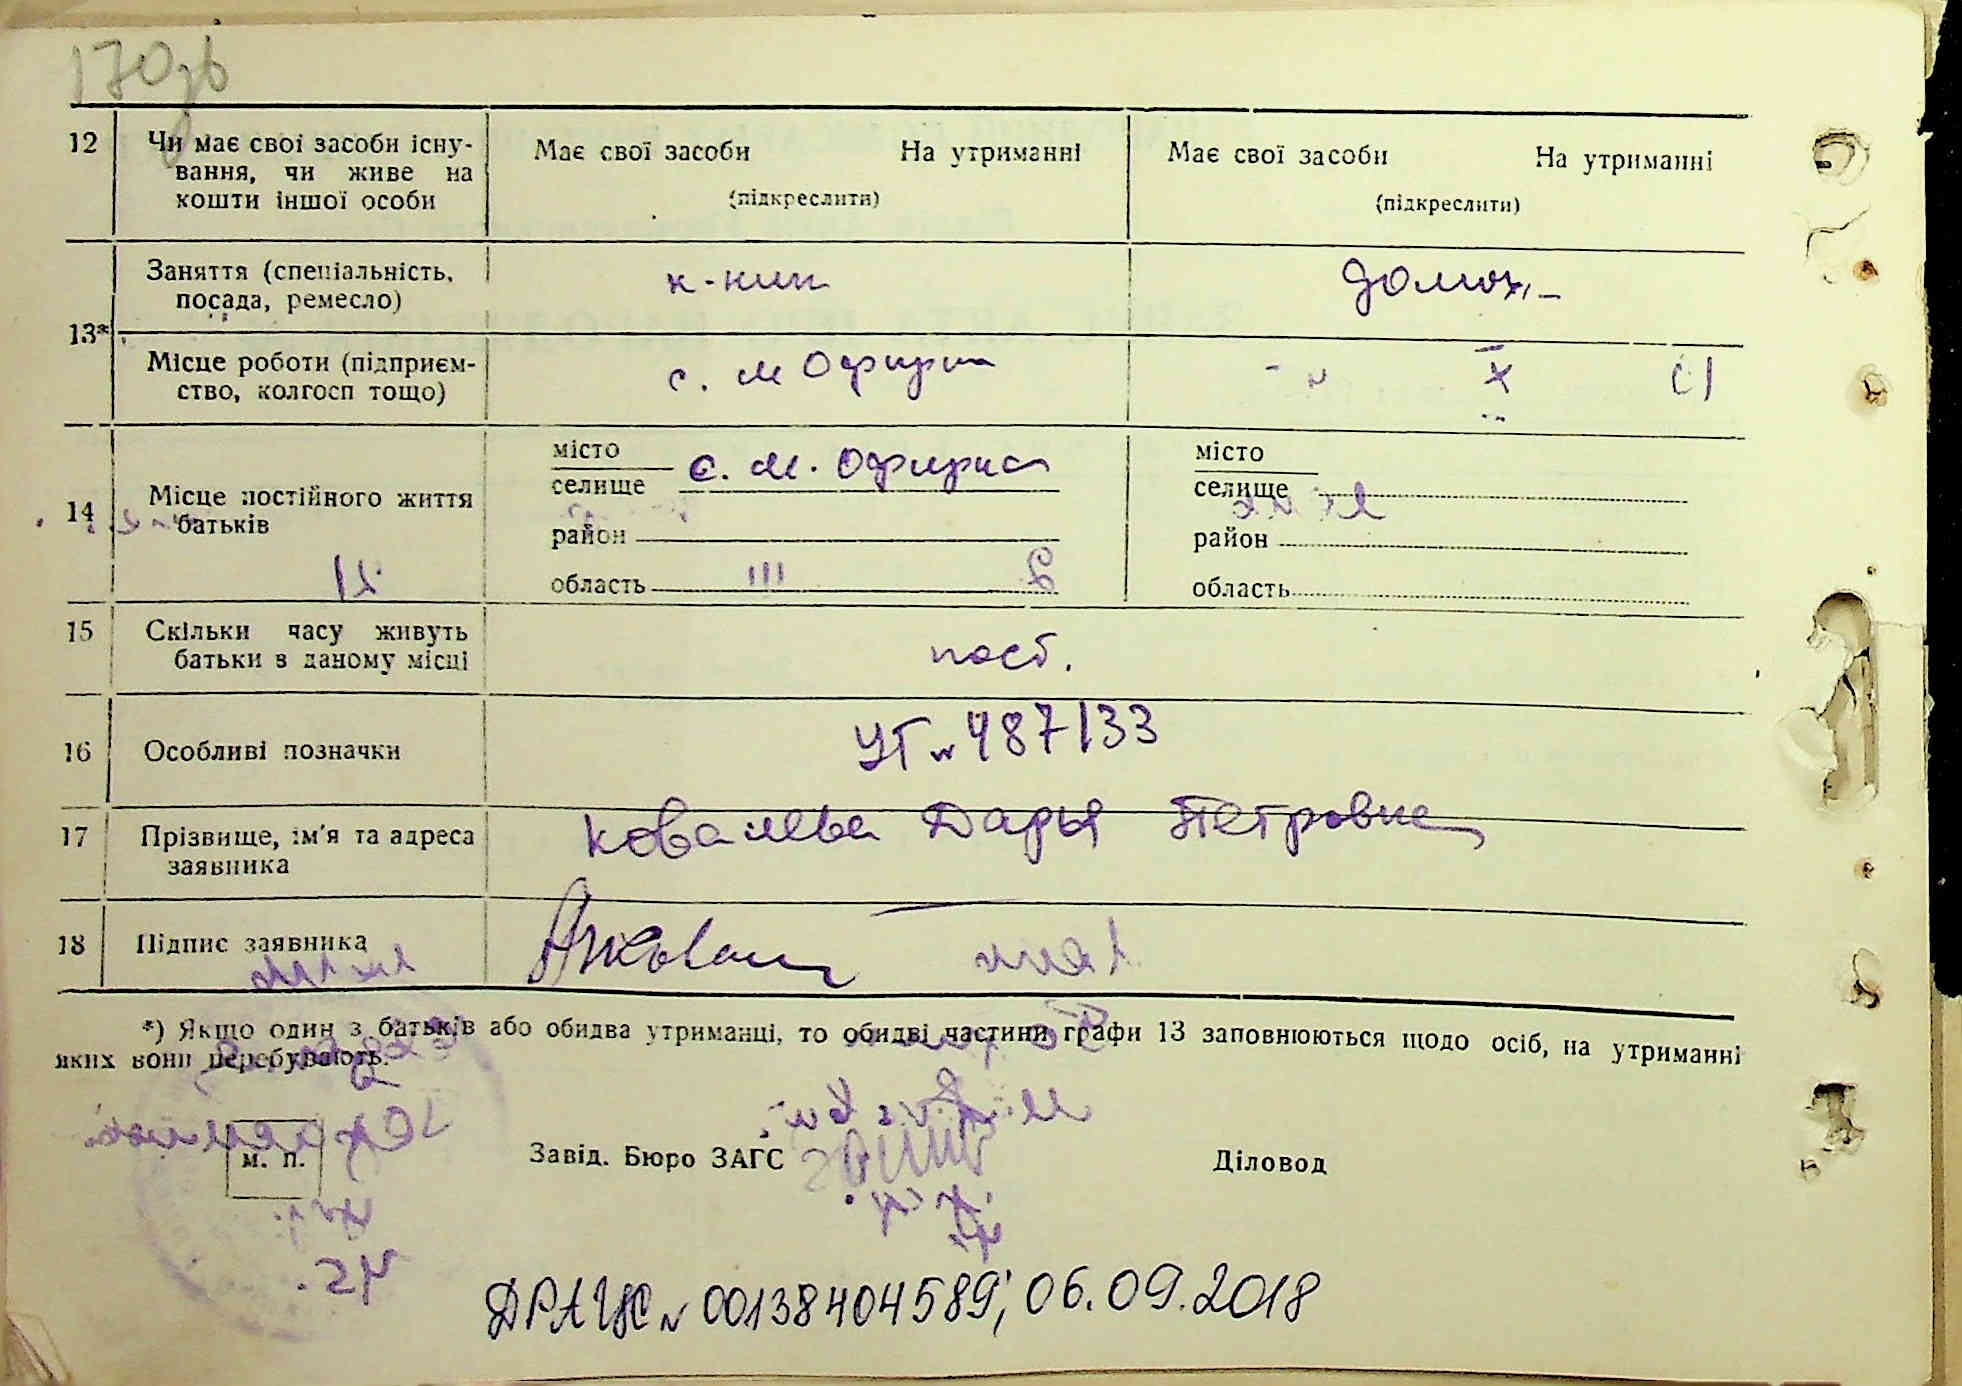 170зв
12 Чи має свої засоби існу-
вання, чи живе на
кошти іншої особи
Має свої засоби На утриманні
(підкреслити)
Має свої засоби На утриманні
(підкреслити)
13*
Заняття (спеціальність,
посада, ремесло)
к-ник
домох.
Місце роботи (підприєм-
ство, колгосп тощо)
с. М Офирна
14 Місце постійного життя
батьків
місто
селище
с. М. Офирна
район
область
місто
селище
район
область
15 Скільки часу живуть
батьки в даному місці
пост.
16 Особливі позначки
УГ № 487133
17 Прізвище, ім'я та адреса
заявника
Ковалева Дарья Петровна
18 Підпис заявника
*) Якщо один з батьків або обидва утриманці, то обидві частини графи 13 заповнюються щодо осіб, на утриманні
яких вони перебувають.
м. п.
Завід. Бюро ЗАГС
Діловод
ДРАЦС № 00138404589; 06.09.2018